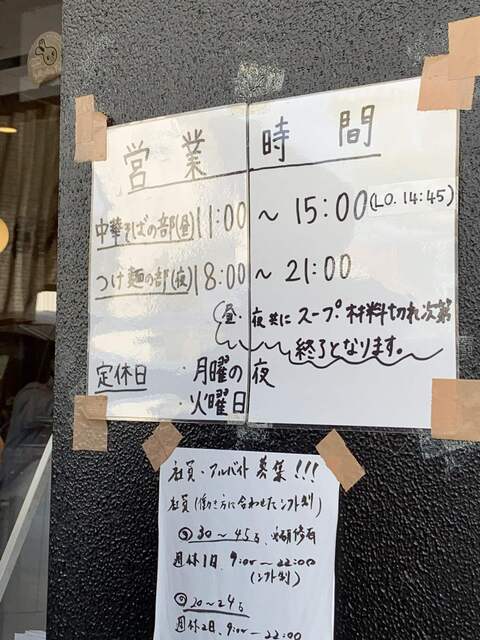 営業時間
中華そばの部(昼) 11:00 ~ 15:00 (LO. 14:45)
つけ麺の部(夜) 18:00 ~ 21:00
昼・夜共にスープ・材料切れ次第
終了となります。
定休日 ・月曜の夜
・火曜日
社員・アルバイト募集!!!
社員(働き方に合わせたシフト制)
◎30〜45万
週休1日 9:00〜22:00
(シフト制)
◎20〜24万
週休2日、9:00〜22:00